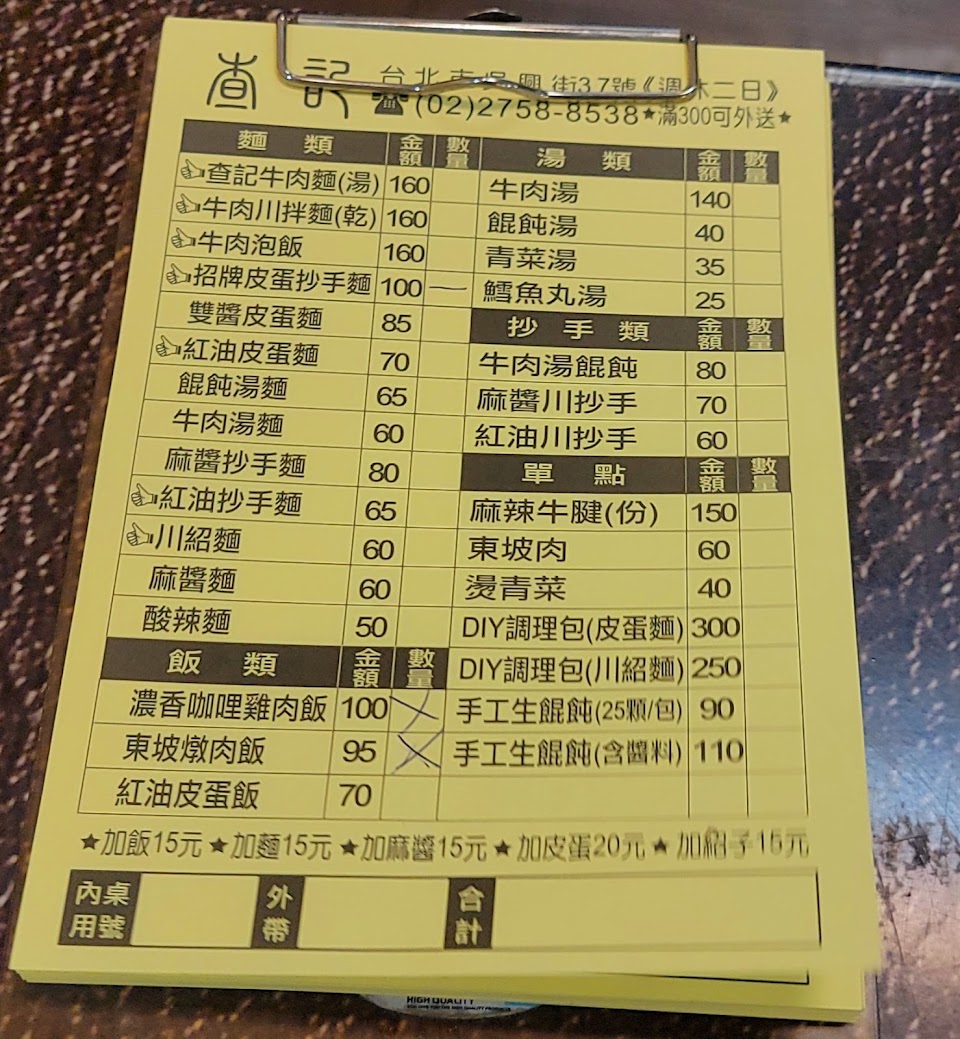 查記 台北市吳興街37號《週休二日》
☎(02)2758-8538★滿300可外送★
麵類 金額 數量
查記牛肉麵(湯) 160
牛肉川拌麵(乾) 160
牛肉泡飯 160
招牌皮蛋抄手麵 100 一
雙醬皮蛋麵 85
紅油皮蛋麵 70
餛飩湯麵 65
牛肉湯麵 60
麻醬抄手麵 80
紅油抄手麵 65
川紹麵 60
麻醬麵 60
酸辣麵 50
飯類 金額 數量
濃香咖哩雞肉飯 100
東坡燉肉飯 95
紅油皮蛋飯 70
湯類 金額 數量
牛肉湯 140
餛飩湯 40
青菜湯 35
鱈魚丸湯 25
抄手類 金額 數量
牛肉湯餛飩 80
麻醬川抄手 70
紅油川抄手 60
單點 金額 數量
麻辣牛腱(份) 150
東坡肉 60
燙青菜 40
DIY調理包(皮蛋麵) 300
DIY調理包(川紹麵) 250
手工生餛飩(25顆/包) 90
手工生餛飩(含醬料) 110
★加飯15元 ★加麵15元 ★加麻醬15元 ★加皮蛋20元 ★加紹子15元
內用 桌號 外帶 合
HIGH QUALITY